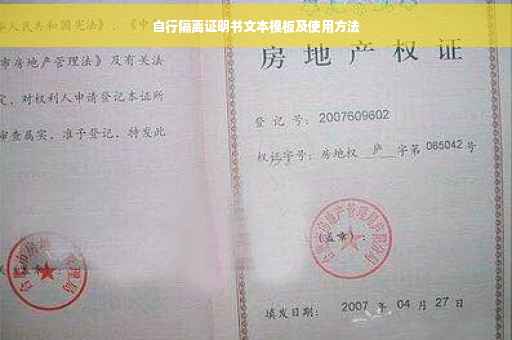 自行隔离证明书文本模板及使用方法
华人民共和国宪法》、《中
市房地产管理法》及有关法
定，对权利人申请登记本证所
审查属实，准予登记，特发此
房地产权证
登记号：2007609602
权证字号：房地权 庐 字第 085042 号
（盖章）：
填发日期： 2007 年 04 月 27 日